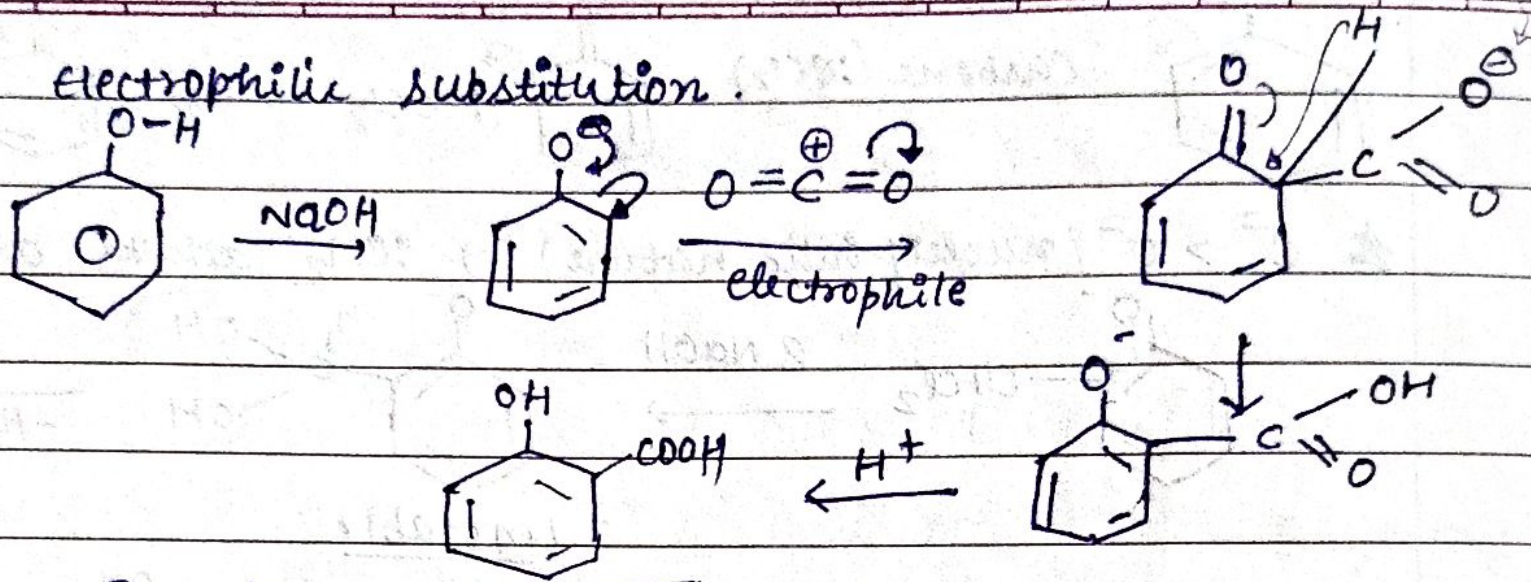 Electrophilic substitution.
O-H
NaOH
O⊖
O=C⊕=O
electrophile
O
H
C
O⊖
O
O-
C
OH
O
H+
OH
COOH